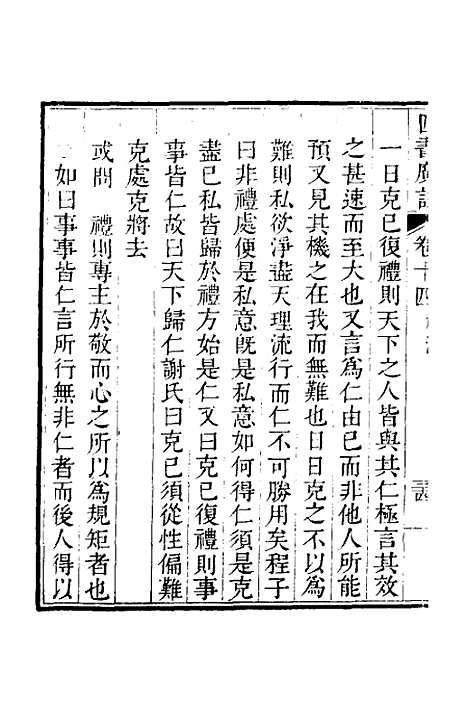 卷十四
一日克己復禮則天下之人皆與其仁極言其效
之甚速而至大也又言為仁由己而非他人所能
預又見其機之在我而無難也日日克之不以為
難則私欲淨盡天理流行而仁不可勝用矣程子
曰非禮處便是私意旣是私意如何得仁須是克
盡己私皆歸於禮方始是仁又曰克己復禮則事
事皆仁故曰天下歸仁謝氏曰克己須從性偏難
克處克將去
或問 禮則專主於敬而心之所以為規矩者也
如曰事事皆仁言所行無非仁者而後人得以